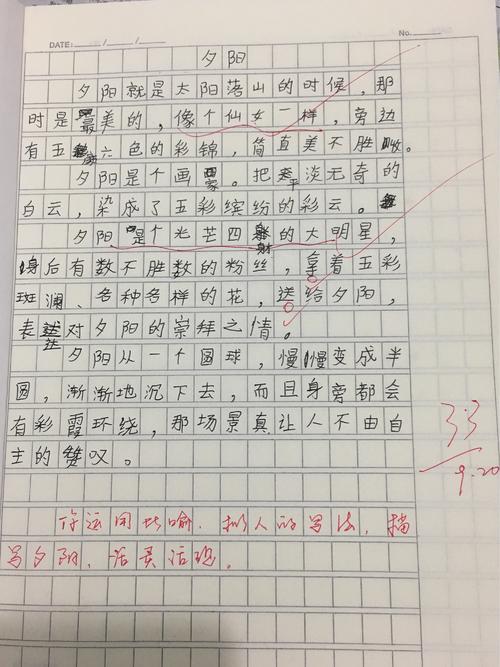 DATE: / / No.
夕阳
夕阳就是太阳落山的时候，那
时是最美的，像个仙女一样，旁边
有五颜六色的彩锦，简直美不胜收。
夕阳是个画家。把平淡无奇的
白云，染成了五彩缤纷的彩云。
夕阳是个光芒四射的大明星，
身后有数不胜数的粉丝，拿着五彩
斑斓、各种各样的花，送给夕阳，
表达对夕阳的崇拜之情。
夕阳从一个圆球，慢慢变成半
圆，渐渐地沉下去，而且身旁都会
有彩霞环绕，那场景真让人不由自
主的赞叹。
33
9.20
你运用比喻、拟人的写法，描
写夕阳，活灵活现。